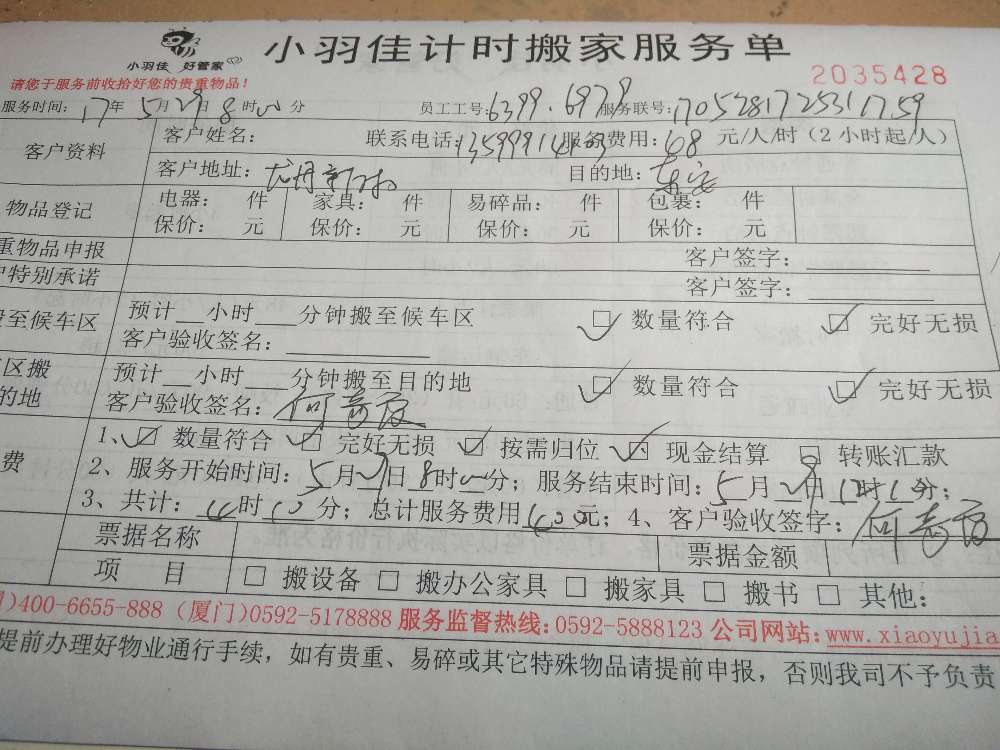 小羽佳计时搬家服务单
小羽佳 好管家
请您于服务前收拾好您的贵重物品！
2035428
服务时间: 17年 5月29日 8时 分 员工工号:6399.6979 服务联号:
客户资料
客户姓名: 联系电话: 服务费用: 68 元/人/时（2小时起/人）
客户地址: 目的地:
物品登记
电器: 件 家具: 件 易碎品: 件 包裹: 件
保价: 元 保价: 元 保价: 元 保价: 元
重物品申报 客户签字:
特别承诺 客户签字:
至候车区
预计 小时 分钟搬至候车区 数量符合 完好无损
客户验收签名:
区搬
的地
预计 小时 分钟搬至目的地 数量符合 完好无损
客户验收签名:
费
1、 数量符合 完好无损 按需归位 现金结算 转账汇款
2、服务开始时间: 5月29日8时 分; 服务结束时间: 5月29日 时 分;
3、共计: 时 分; 总计服务费用 元; 4、客户验收签字:
票据名称 票据金额
项 目 搬设备 搬办公家具 搬家具 搬书 其他:
)400-6655-888（厦门)0592-5178888 服务监督热线:0592-5888123 公司网站:www.xiaoyujia
提前办理好物业通行手续，如有贵重、易碎或其它特殊物品请提前申报，否则我司不予负责